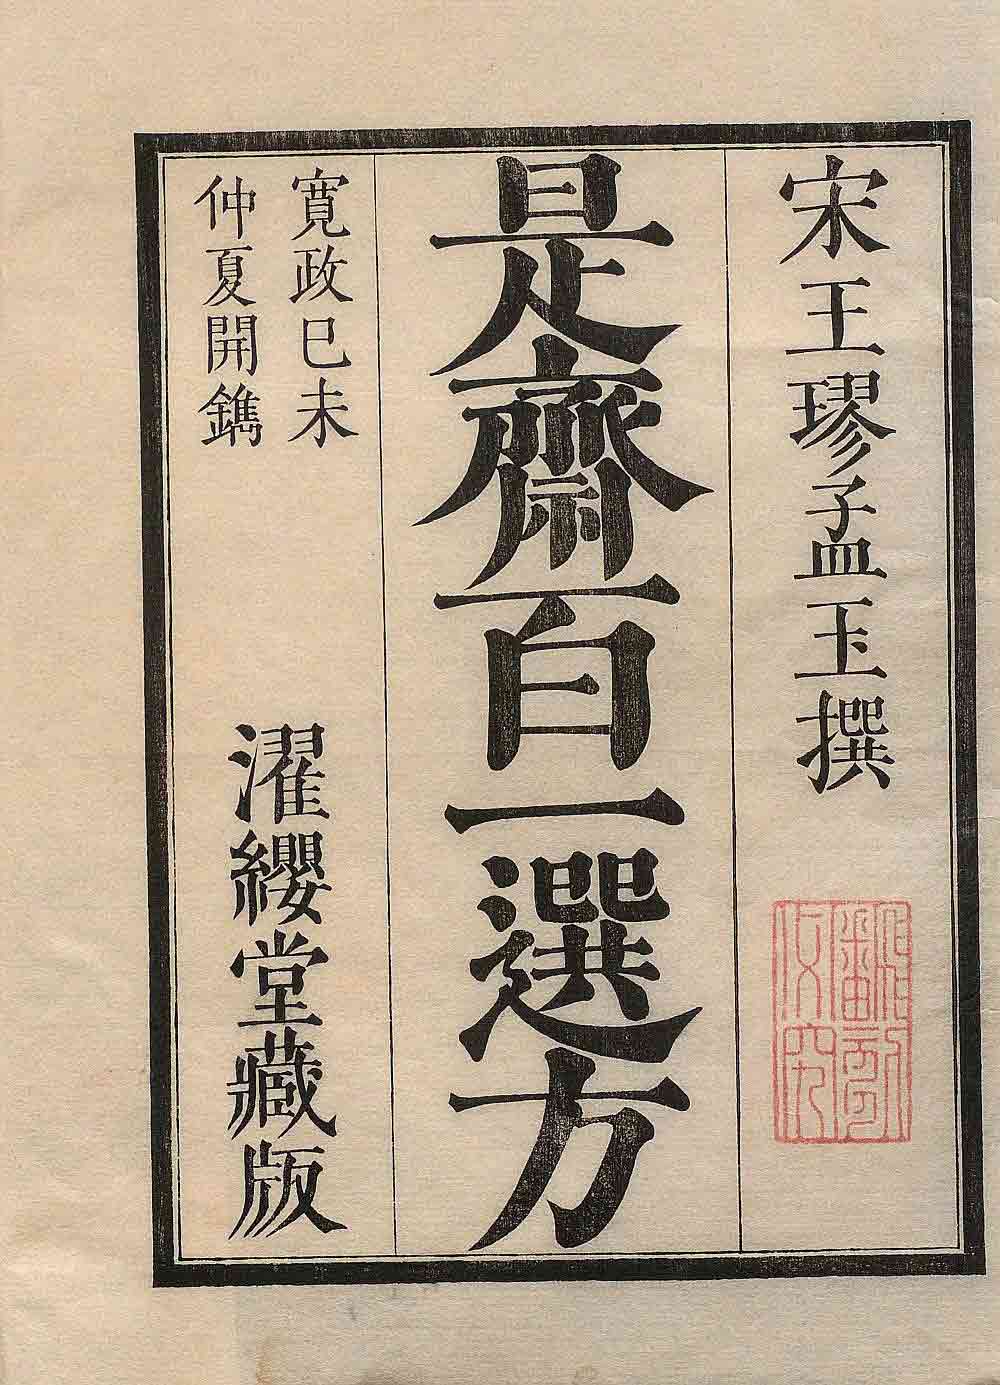 宋王璆孟玉撰
是齋百一選方
寬政己未
仲夏開鐫
濯纓堂藏版